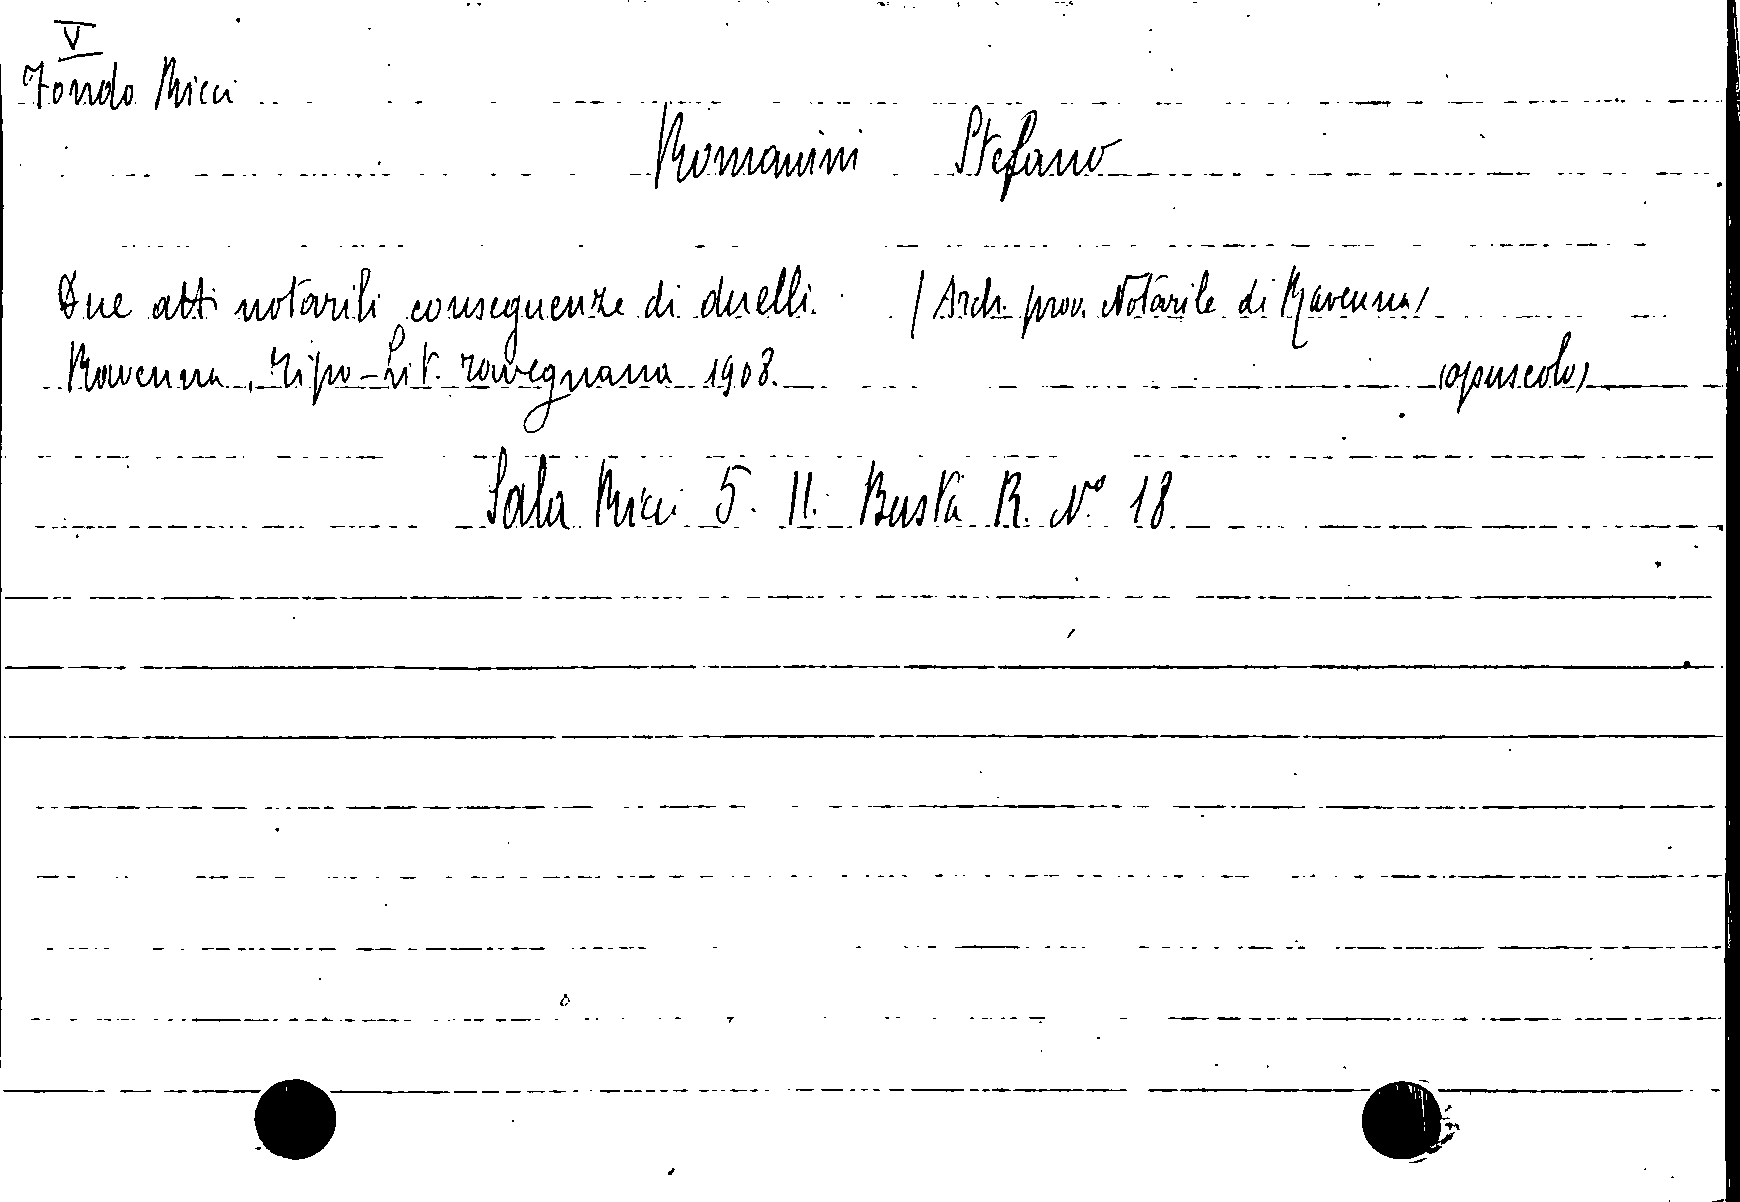 V
Fondo Ricci
Romanini Stefano
Due atti notarili conseguenze di duelli. (Arch. prov. Notarile di Ravenna)
Ravenna, Tipo-Lit. ravegnana 1908. (opuscolo)
Sala Ricci 5. II. Busta R. N° 18